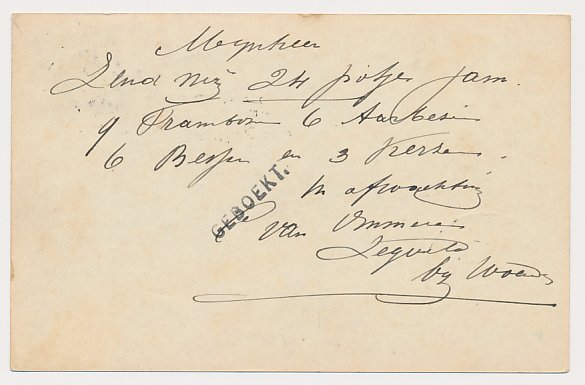 Mynheer
Zend mij 24 potjes jam.
9 Frambozen 6 Aardbeien
6 Bessen en 3 Kersen.
In afwachting
GEBOEKT.
Van Ommeren
Zegveld
bij Woerden